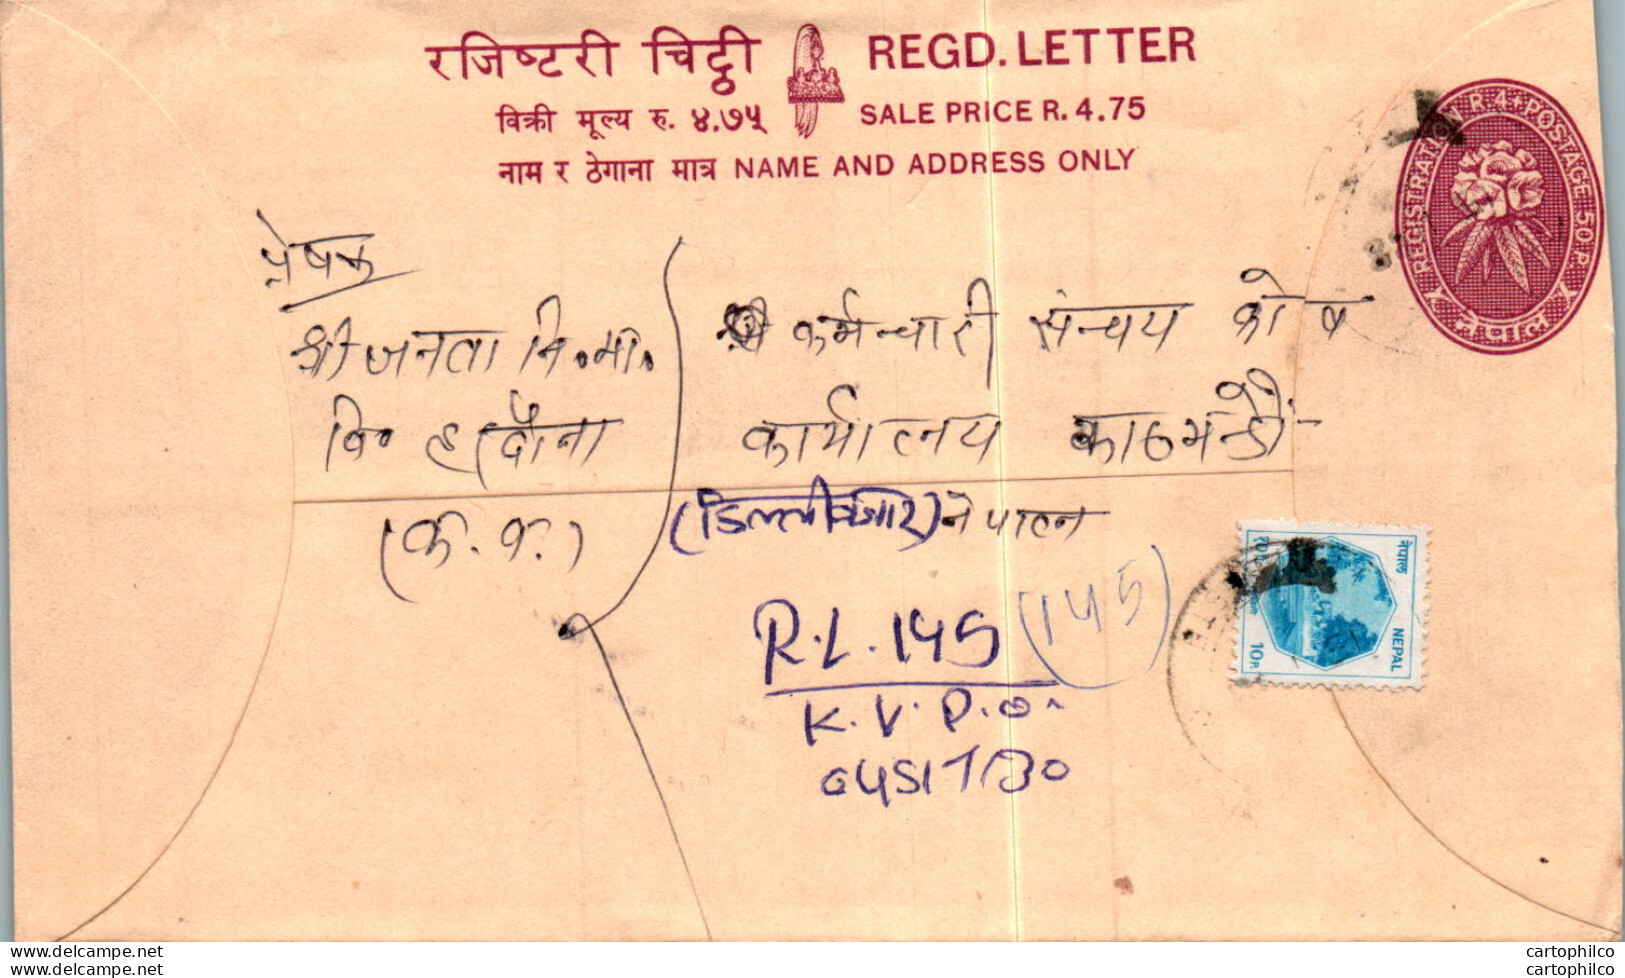 रजिष्टरी चिट्ठी REGD. LETTER
विक्री मूल्य रु. ४.७५ SALE PRICE R. 4.75
नाम र ठेगाना मात्र NAME AND ADDRESS ONLY
REGISTRATION R.4+POSTAGE 50 P.
नेपाल
प्रेषक
श्री जनता नि.मा.
वि० हर्दौना
(क. व.)
कर्मचारी संचय कोष
कार्यालय काठमन्डौं-
(डिल्लीबजार) नेपाल
R.L. 145 (145)
K.V.P.O.
नेपाल
NEPAL
10 P.
www.delcampe.net
www.delcampe.net
cartophilco
cartophilco